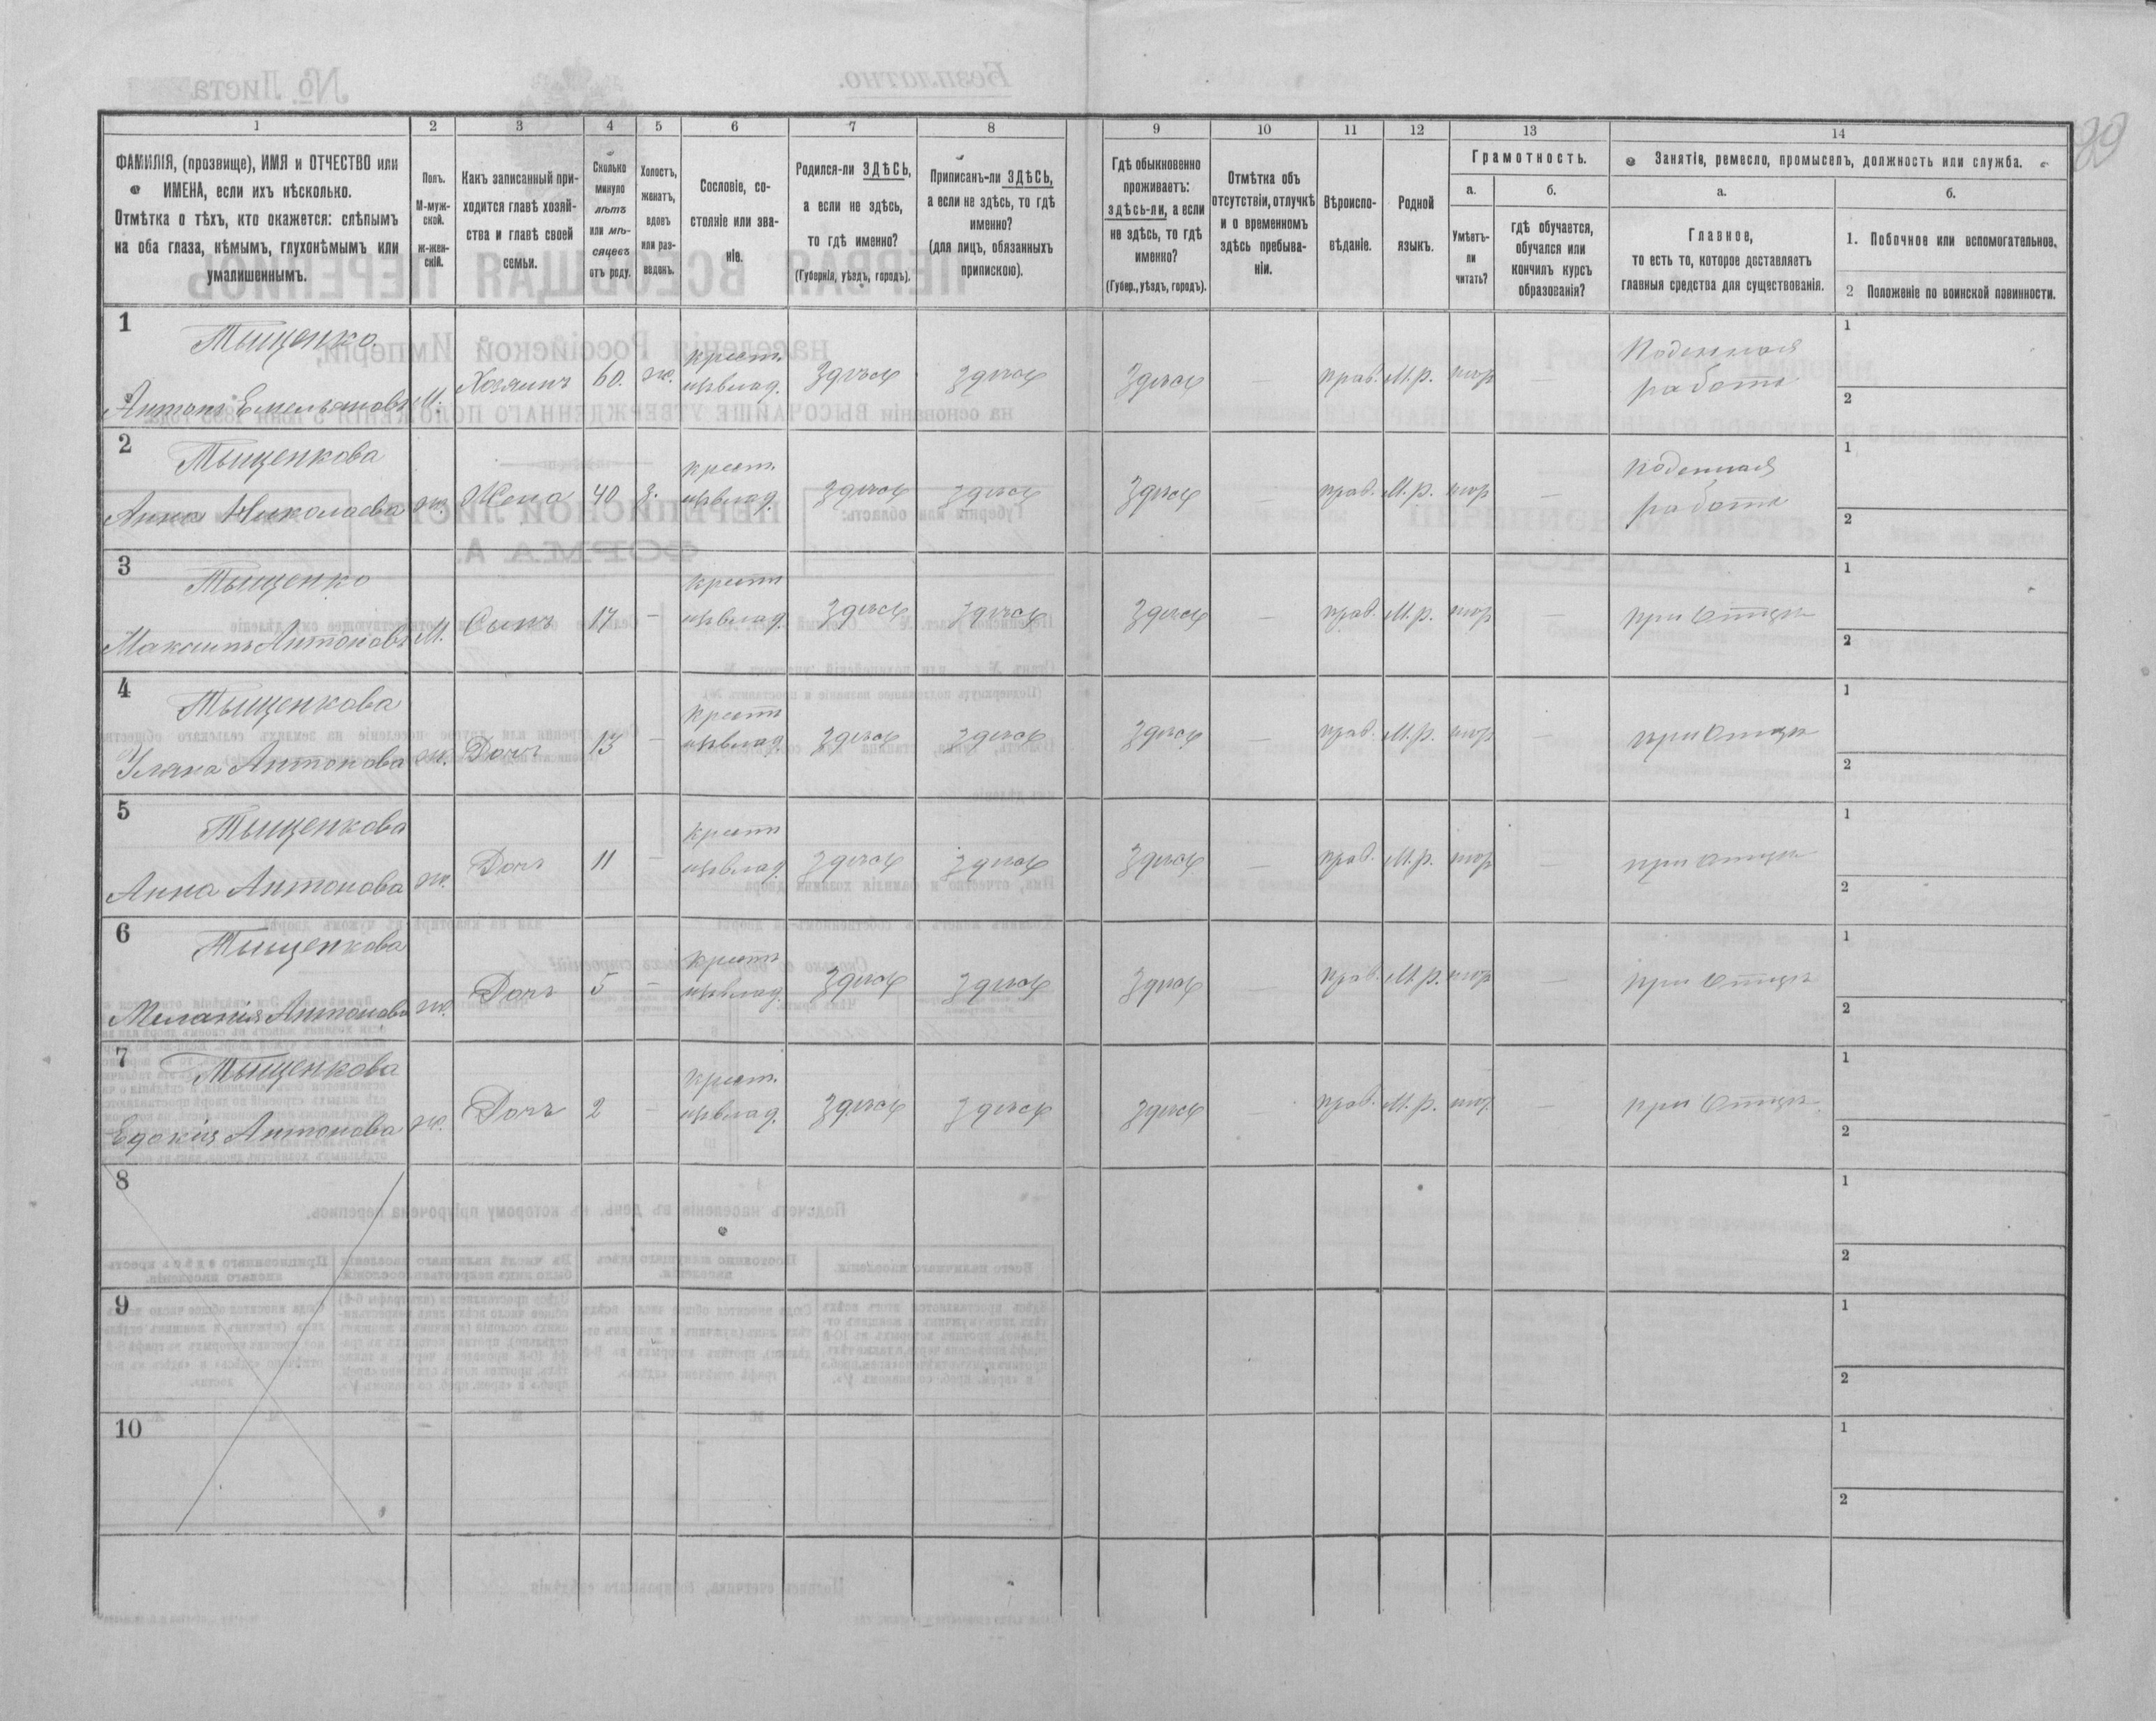 89
1 2 3 4 5 6 7 8 9 10 11 12 13 14
ФАМИЛІЯ, (прозвище), ИМЯ и ОТЧЕСТВО или
ИМЕНА, если ихъ нѣсколько.
Отмѣтка о тѣхъ, кто окажется: слѣпымъ
на оба глаза, нѣмымъ, глухонѣмымъ или
умалишеннымъ.
Полъ.
М-муж-
ской.
ж-жен-
скій.
Какъ записанный при-
ходится главѣ хозяй-
ства и главѣ своей
семьи.
Сколько
минуло
лѣтъ
или мѣ-
сяцевъ
отъ роду.
Холостъ,
женатъ,
вдовъ
или раз-
веденъ.
Сословіе, со-
стояніе или зва-
ніе.
Родился-ли ЗДѢСЬ,
а если не здѣсь,
то гдѣ именно?
(Губернія, уѣздъ, городъ).
Приписанъ-ли ЗДѢСЬ,
а если не здѣсь, то гдѣ
именно?
(для лицъ, обязанныхъ
припискою).
Гдѣ обыкновенно
проживаетъ:
здѣсь-ли, а если
не здѣсь, то гдѣ
именно?
(Губер., уѣздъ, городъ).
Отмѣтка объ
отсутствіи, отлучкѣ
и о временномъ
здѣсь пребыва-
ніи.
Вѣроиспо-
вѣданіе.
Родной
языкъ.
Грамотность.
а.
Умѣетъ-
ли
читать?
б.
гдѣ обучается,
обучался или
кончилъ курсъ
образованія?
Занятіе, ремесло, промыселъ, должность или служба.
а.
Главное,
то есть то, которое доставляетъ
главныя средства для существованія.
б.
1. Побочное или вспомогательное.
2 Положеніе по воинской повинности.
1
Тыщенко
Антонъ Емельяновъ М. Хозяинъ 60. ж. крест. Здѣсь Здѣсь Здѣсь — прав. М.р. — Поденная
работа
1
2
2
Тыщенкова
Анна Николаева ж. Жена 40 з. крест. Здѣсь Здѣсь Здѣсь — прав. М.р. — Поденная
работа
1
2
3
Тыщенко
Максимъ Антоновъ М. Сынъ 17 — крест Здѣсь Здѣсь Здѣсь — прав. М.р. — при Отцѣ
1
2
4
Тыщенкова
Уляна Антонова ж. Дочь 13 — крест Здѣсь Здѣсь Здѣсь — прав. М.р. — при Отцѣ
1
2
5
Тыщенкова
Анна Антонова ж. Дочь 11 — крест Здѣсь Здѣсь Здѣсь — прав. М.р. — при отцѣ
1
2
6
Тыщенкова
Меланія Антонова ж. Дочь 5 — крест Здѣсь Здѣсь Здѣсь — прав. М.р. — при Отцѣ
1
2
7
Тыщенкова
Едокія Антонова ж. Дочь 2 — крест. Здѣсь Здѣсь Здѣсь прав. М.р. — при Отцѣ
1
2
8
1
2
9
1
2
10
1
2